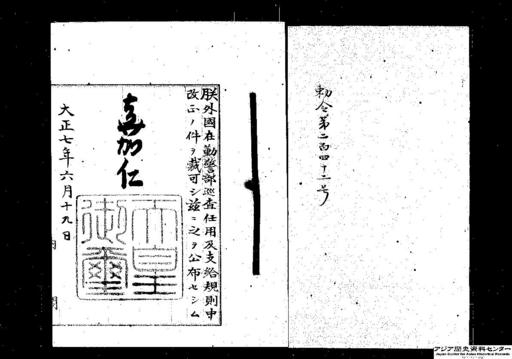 勅令第二百四十二号
朕外國在勤警部巡査任用及支給規則中
改正ノ件ヲ裁可シ茲ニ之ヲ公布セシム
嘉仁
天皇御璽
大正七年六月十九日
アジア歴史資料センター
Japan Center for Asian Historical Records